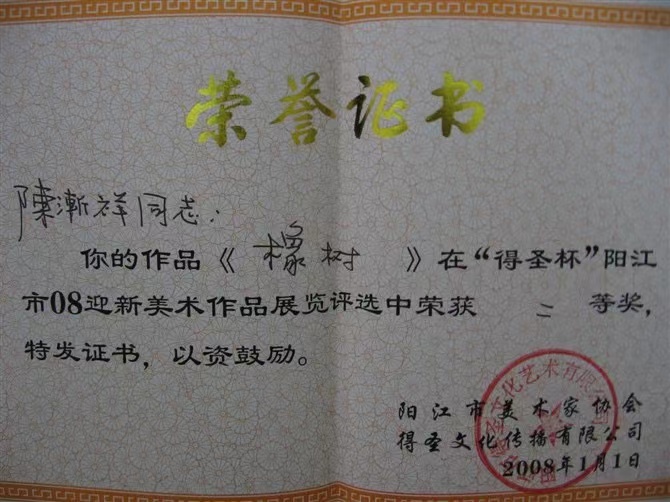 荣誉证书
陳漸祥同志：
你的作品《橡树》在“得圣杯”阳江
市08迎新美术作品展览评选中荣获 二 等奖，
特发证书，以资鼓励。
阳江市美术家协会
得圣文化传播有限公司
2008年1月1日